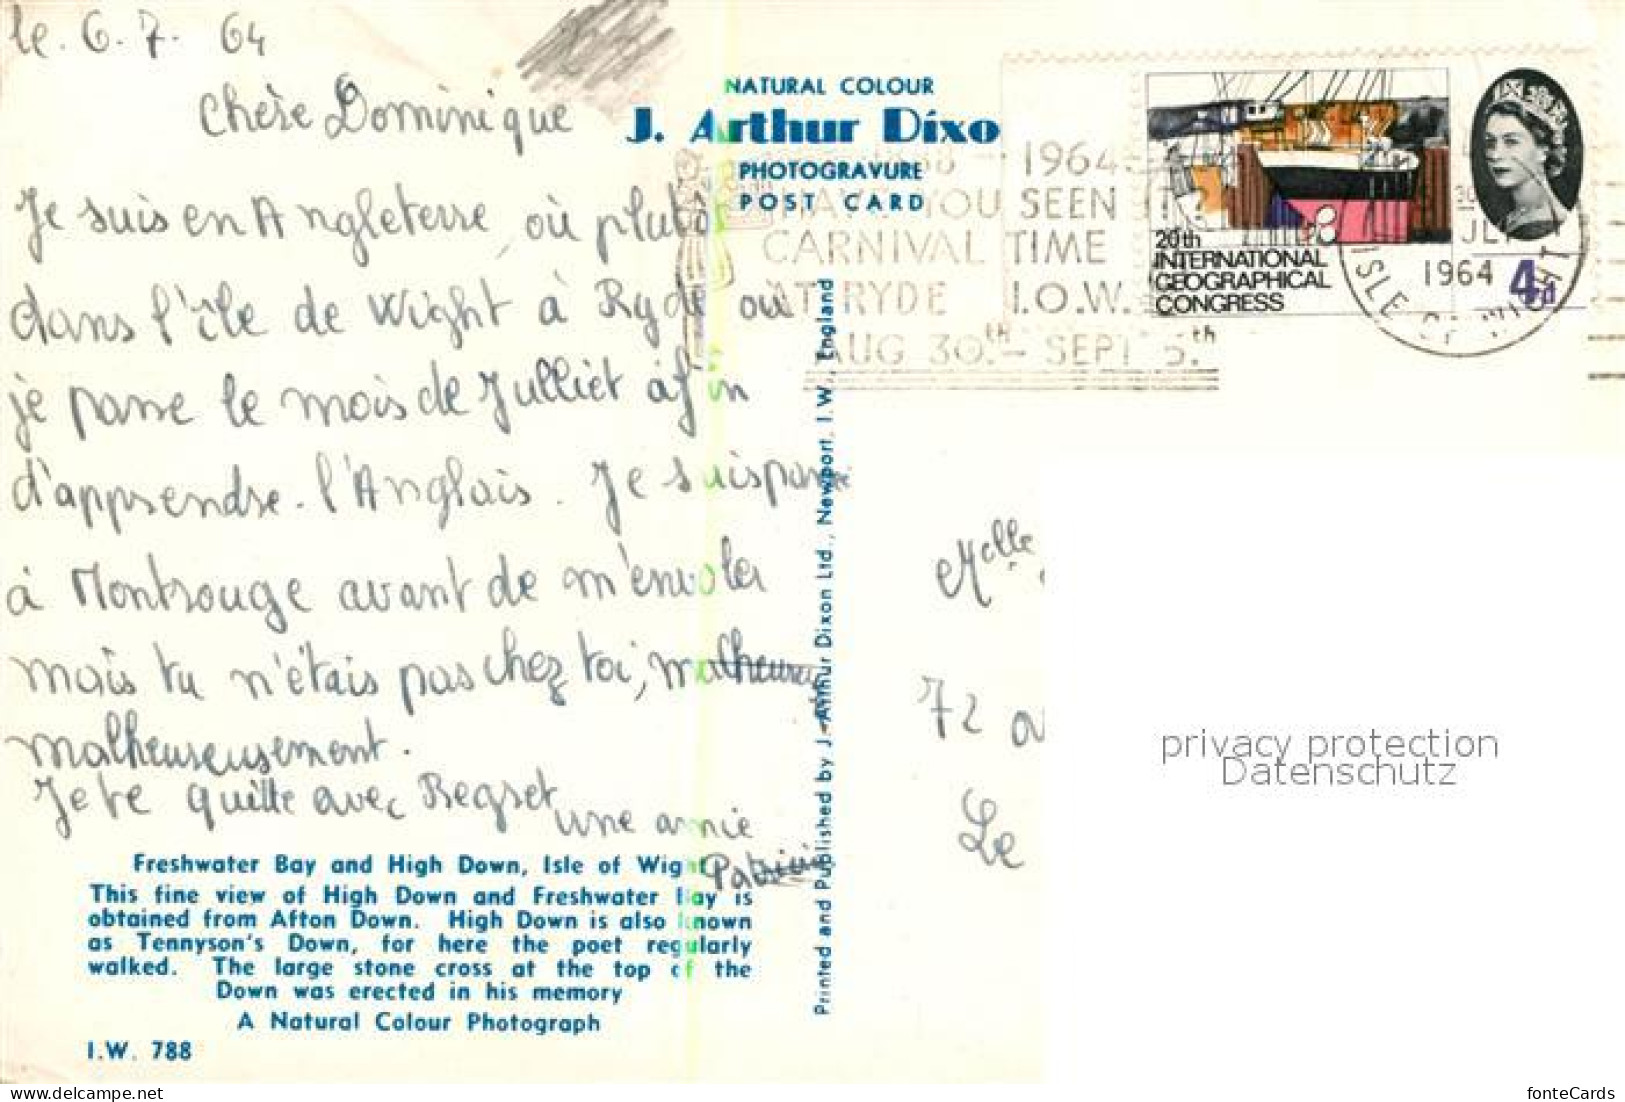 le. 6. 7. 64
Chère Dominique
Je suis en Angleterre, où plutot
dans l'île de Wight à Ryde où
je passe le mois de Julliet afin
d'apprendre. l'Anglais. Je suis passée
à Montrouge avant de m'envoler
mais tu n'étais pas chez toi, malheureu
malheureusement.
Je te quitte avec Regret
une amie
Patricia
Freshwater Bay and High Down, Isle of Wight
This fine view of High Down and Freshwater Bay is
obtained from Afton Down. High Down is also known
as Tennyson's Down, for here the poet regularly
walked. The large stone cross at the top of the
Down was erected in his memory
A Natural Colour Photograph
I.W. 788
NATURAL COLOUR
J. Arthur Dixo
PHOTOGRAVURE
POST CARD
Printed and Published by J. Arthur Dixon Ltd., Newport, I.W., England
- 1964
HAVE YOU SEEN IT?
CARNIVAL TIME
AT RYDE I.O.W.
AUG 30th - SEPT 5th
20th
INTERNATIONAL
GEOGRAPHICAL
CONGRESS
4d
JLY
1964
ISLE OF WIGHT
Melle
72 a
Le
privacy protection
Datenschutz
delcampe.net
fonteCards